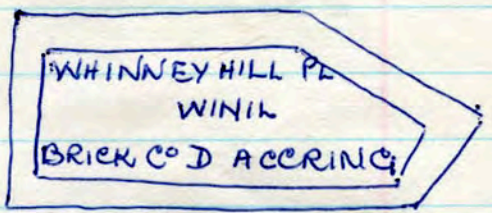 WHINNEY HILL PL
WINIL
BRICK Cº D ACCRING